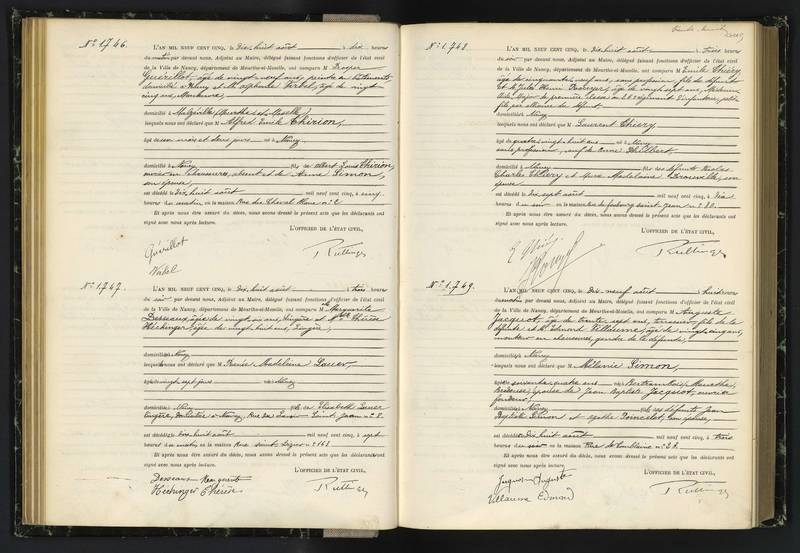 N° 1.746.
L'AN MIL NEUF CENT CINQ, le Dix-huit août à dix heures
du matin par devant nous, Adjoint au Maire, délégué faisant fonctions d'officier de l'état civil
de la Ville de Nancy, département de Meurthe-et-Moselle, ont comparu M Prosper
Guérillot, âgé de vingt-neuf ans, peintre en bâtiments
domicilié à Nancy et M. Alphonse âgé de vingt
cinq ans,
domiciliés à Malzéville (Meurthe-et-Moselle)
lesquels nous ont déclaré que M Alfred Emile Thirion,
âgé de un mois et deux jours né à Nancy
domicilié à Nancy fils de Albert Louis Thirion,
absent et de Anne Simon,
son épouse
est décédé le Dix-huit août mil neuf cent cinq, à cinq
heures du matin en la maison Rue du Cheval Blanc n° 2
Et après nous être assuré du décès, nous avons dressé le présent acte que les déclarants ont
signé avec nous après lecture.
L'OFFICIER DE L'ÉTAT CIVIL,
Guérillot
N° 1.747.
L'AN MIL NEUF CENT CINQ, le Dix-huit août à trois heures
du soir par devant nous, Adjoint au Maire, délégué faisant fonctions d'officier de l'état civil
de la Ville de Nancy, département de Meurthe-et-Moselle, ont comparu M Marguerite
Desseaux, âgée de vingt-six ans, lingère et Thérèse
Héchinger, âgée de vingt-huit ans, lingère,
domiciliés à Nancy
lesquels nous ont déclaré que M Madeleine Lauer,
âgée de vingt sept jours née à Nancy
domiciliée à Nancy fille de Elisabeth Lauer
lingère, domiciliée à Nancy, Rue du Saint Jean n° 2.
est décédée le Dix-huit août mil neuf cent cinq, à sept
heures du matin, en la maison Rue saint
Et après nous être assuré du décès, nous avons dressé le présent acte que les déclarantes ont
signé avec nous après lecture.
L'OFFICIER DE L'ÉTAT CIVIL,
Desseaux Marguerite
Héchinger Thérèse
N° 1.748.
L'AN MIL NEUF CENT CINQ, le Dix-huit août à trois heures
du soir par devant nous, Adjoint au Maire, délégué faisant fonctions d'officier de l'état civil
de la Ville de Nancy, département de Meurthe-et-Moselle, ont comparu M Emile Thiéry
âgé de cinquante-neuf ans, sans profession, fils du défunt
et M. Jules Henri âgé de vingt sept ans, Médecin
Aide Major de première classe au 26e régiment d'infanterie, petit
fils par alliance du défunt,
domiciliés à Nancy
lesquels nous ont déclaré que M Laurent Thiéry,
âgé de quatre-vingt-huit ans né à Nancy
sans profession, veuf de Anne
domicilié à Nancy fils des défunts Nicolas
Charles Thiéry et Marie Madeleine son
épouse
est décédé le Dix-sept août mil neuf cent cinq, à trois
heures du soir en la maison rue du faubourg saint Jean n° 20.
Et après nous être assuré du décès, nous avons dressé le présent acte que les déclarants ont
signé avec nous après lecture.
L'OFFICIER DE L'ÉTAT CIVIL,
N° 1.749.
L'AN MIL NEUF CENT CINQ, le Dix-neuf août à huit heures
du matin par devant nous, Adjoint au Maire, délégué faisant fonctions d'officier de l'état civil
de la Ville de Nancy, département de Meurthe-et-Moselle, ont comparu M Auguste
Jacquot, âgé de trente sept ans, fils de la
défunte et M. Edmond Villaume, âgé de vingt cinq ans,
en chaussures, gendre de la défunte,
domiciliés à Nancy
lesquels nous ont déclaré que M Mélanie Simon,
âgée de soixante-quatre ans née à Bertrambois, Meurthe,
épouse de Jean Baptiste Jacquot, ouvrier
fondeur
domiciliée à Nancy fille des défunts Jean
Baptiste Simon et Agathe son épouse,
est décédée le Dix-huit août mil neuf cent cinq, à trois
heures du soir en la maison Rue
Et après nous être assuré du décès, nous avons dressé le présent acte que les déclarants ont
signé avec nous après lecture.
L'OFFICIER DE L'ÉTAT CIVIL,
Jacquot Auguste
Villaume Edmond